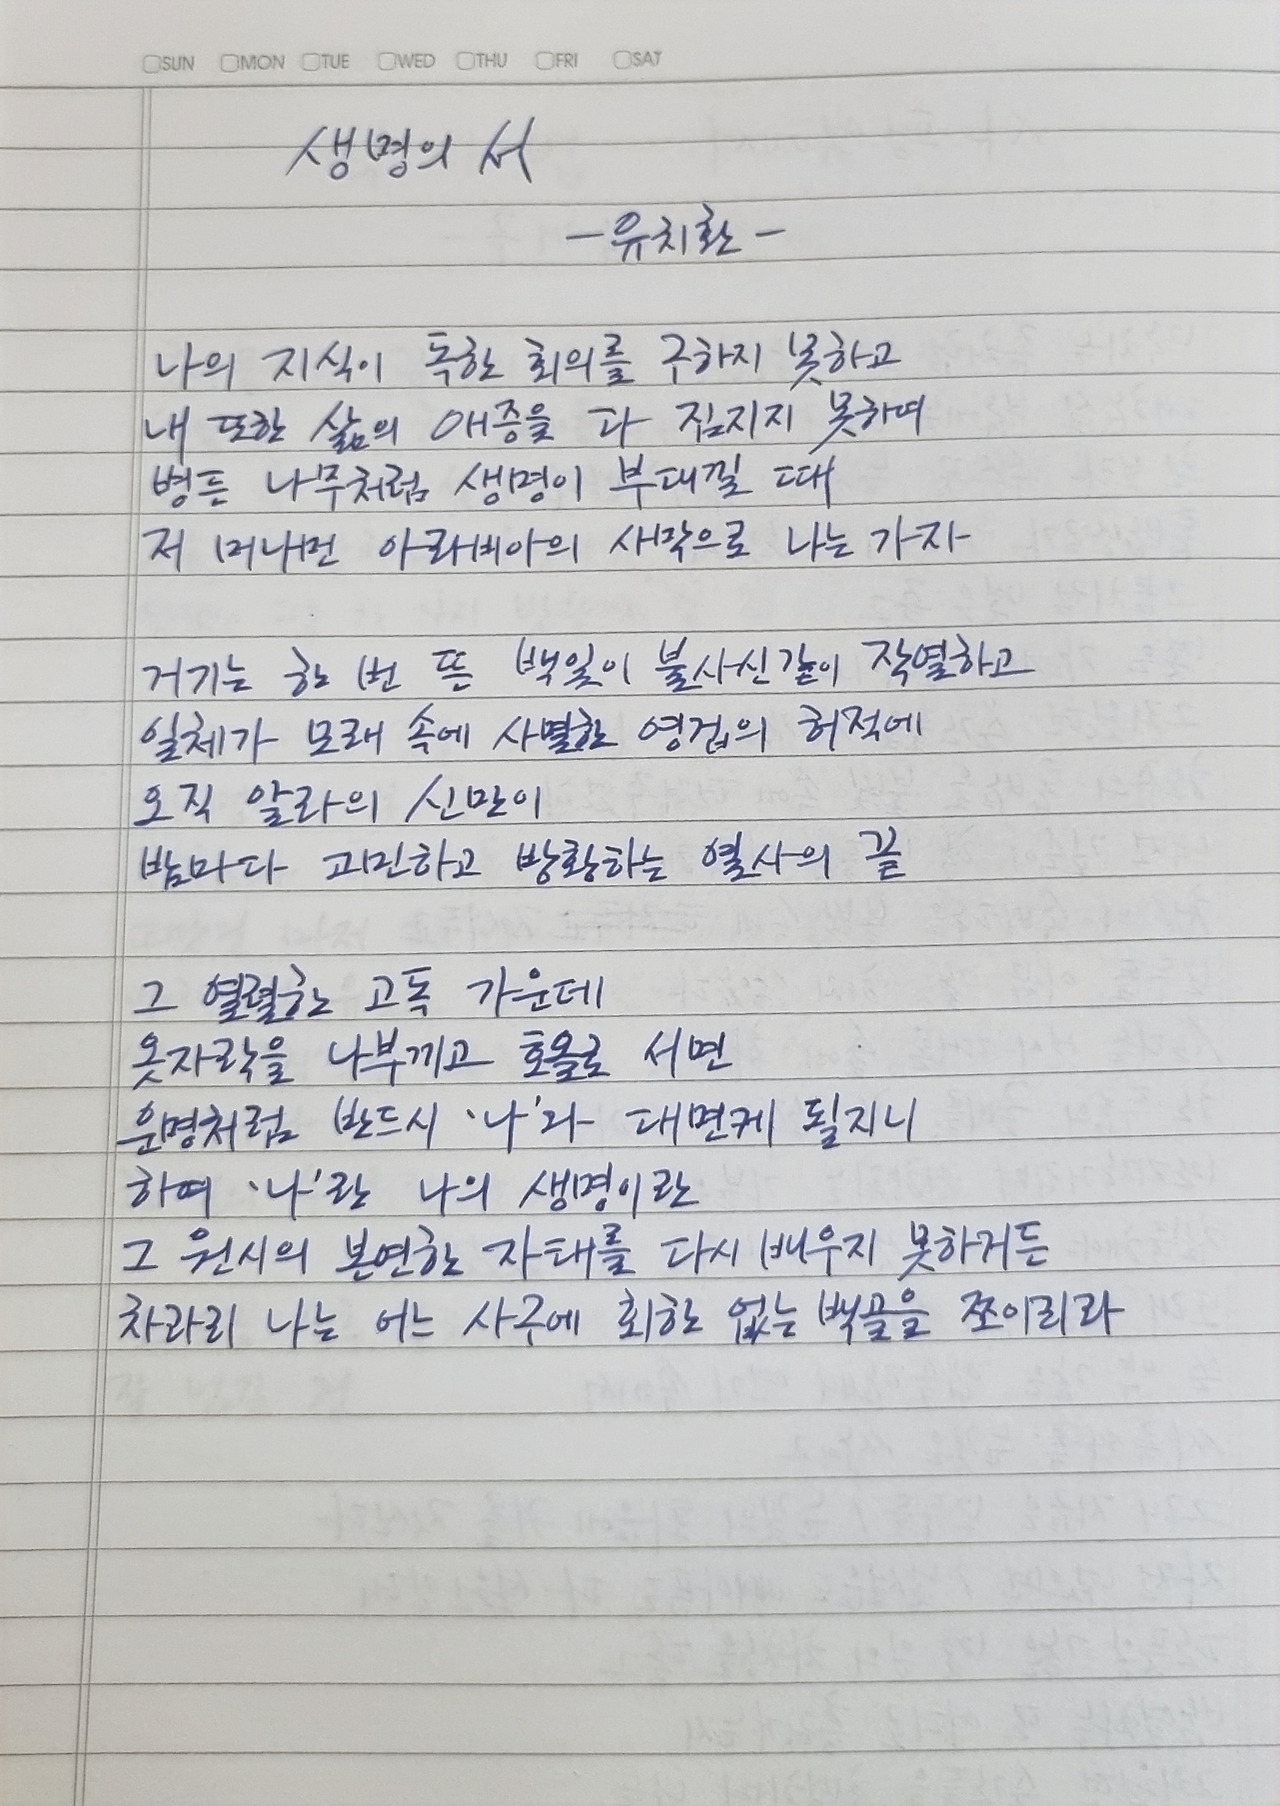 SUN MON TUE WED THU FRI SAT
생명의 서
- 유치환 -
나의 지식이 독한 회의를 구하지 못하고
내 또한 삶의 애증을 다 짐지지 못하여
병든 나무처럼 생명이 부대낄 때
저 머나먼 아라비아의 사막으로 나는 가자
거기는 한 번 뜬 백일이 불사신같이 작열하고
일체가 모래 속에 사멸한 영겁의 허적에
오직 알라의 신만이
밤마다 고민하고 방황하는 열사의 끝
그 열렬한 고독 가운데
옷자락을 나부끼고 호올로 서면
운명처럼 반드시 '나'와 대면케 될지니
하여 '나'란 나의 생명이란
그 원시의 본연한 자태를 다시 배우지 못하거든
차라리 나는 어느 사구에 회한 없는 백골을 쪼이리라